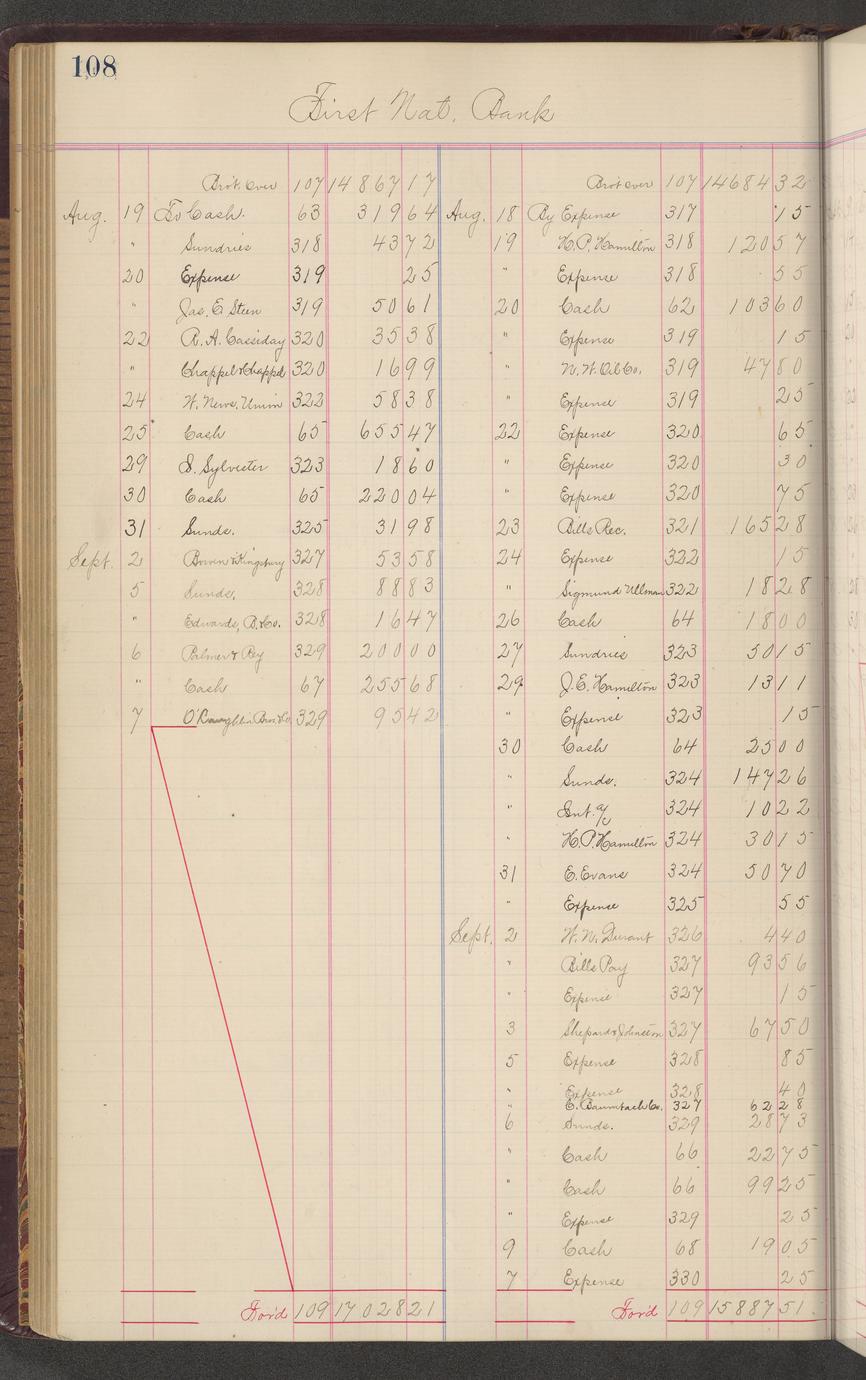 108
First Nat. Bank
Bro't over 107 14867 17
Aug. 19 To Cash. 63 319 64
" Sundries 318 43 72
20 Expense 319 25
" Jas. E. Steen 319 50 61
22 R. A. Cassiday 320 35 38
" Chappel & Chappel 320 16 99
24 W. News. Union 322 58 38
25 Cash 65 655 47
29 S. Sylvester 323 18 60
30 Cash 65 220 04
31 Sunds. 325 31 98
Sept. 2 Bowen & Kingsbury 327 53 58
5 Sunds. 328 88 83
" Edwards, B. Co. 328 16 47
6 Palmer & Rey 329 200 00
" Cash 67 255 68
7 Bros. & Co. 329 95 42
For'd 109 17028 21
Bro't over 107 14684 32
Aug. 18 By Expense 317 15
19 H. P. Hamilton 318 120 57
" Expense 318 55
20 Cash 62 103 60
" Expense 319 15
" N. W. Oil Co. 319 47 80
" Expense 319 25
22 Expense 320 65
" Expense 320 30
" Expense 320 75
23 Bills Rec. 321 165 28
24 Expense 322 15
" Sigmund Ullman 322 18 28
26 Cash 64 18 00
27 Sundries 323 50 15
29 J. E. Hamilton 323 13 11
" Expense 323 15
30 Cash 64 25 00
" Sunds. 324 147 26
" Int. a/c 324 10 22
" H. P. Hamilton 324 30 15
31 E. Evans 324 50 70
" Expense 325 55
Sept. 2 W. N. Durant 326 4 40
" Bills Pay 327 93 56
" Expense 327 15
3 Shepard & Johnston 327 67 50
5 Expense 328 85
" Expense 328 40
" E. Co. 327 62 28
6 Sunds. 329 28 73
" Cash 66 22 75
" Cash 66 99 25
" Expense 329 25
9 Cash 68 19 05
7 Expense 330 25
For'd 109 15887 51